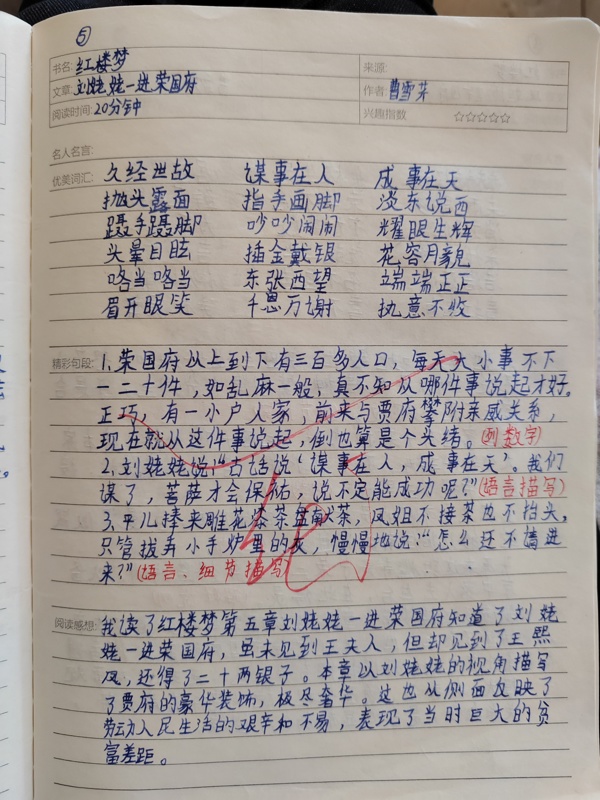 ⑤
书名: 红楼梦
来源:
文章: 刘姥姥一进荣国府
作者: 曹雪芹
阅读时间: 20分钟
兴趣指数 ☆☆☆☆☆
名人名言:
优美词汇: 久经世故 谋事在人 成事在天
抛头露面 指手画脚 谈东说西
蹑手蹑脚 吵吵闹闹 耀眼生辉
头晕目眩 插金戴银 花容月貌
咯当咯当 东张西望 端端正正
眉开眼笑 千恩万谢 执意不收
精彩句段: 1.荣国府以上到下有三百多人口，每天大小事不下
一二十件，如乱麻一般，真不知从哪件事说起才好。
正巧，有一小户人家，前来与贾府攀附亲戚关系，
现在就从这件事说起，倒也算是个头绪。(列数字)
2.刘姥姥说:“古话说‘谋事在人，成事在天’。我们
谋了，菩萨才会保佑，说不定能成功呢?”(语言描写)
3.平儿捧来雕花漆茶盘献茶，凤姐不接茶也不抬头，
只管拨弄小手炉里的灰，慢慢地说:“怎么还不请进
来?”(语言、细节描写)
阅读感想: 我读了红楼梦第五章刘姥姥一进荣国府知道了刘姥
姥一进荣国府，虽未见到王夫人，但却见到了王熙
凤，还得了二十两银子。本章以刘姥姥的视角描写
了贾府的豪华装饰，极尽奢华。这也从侧面反映了
劳动人民生活的艰辛和不易，表现了当时巨大的贫
富差距。